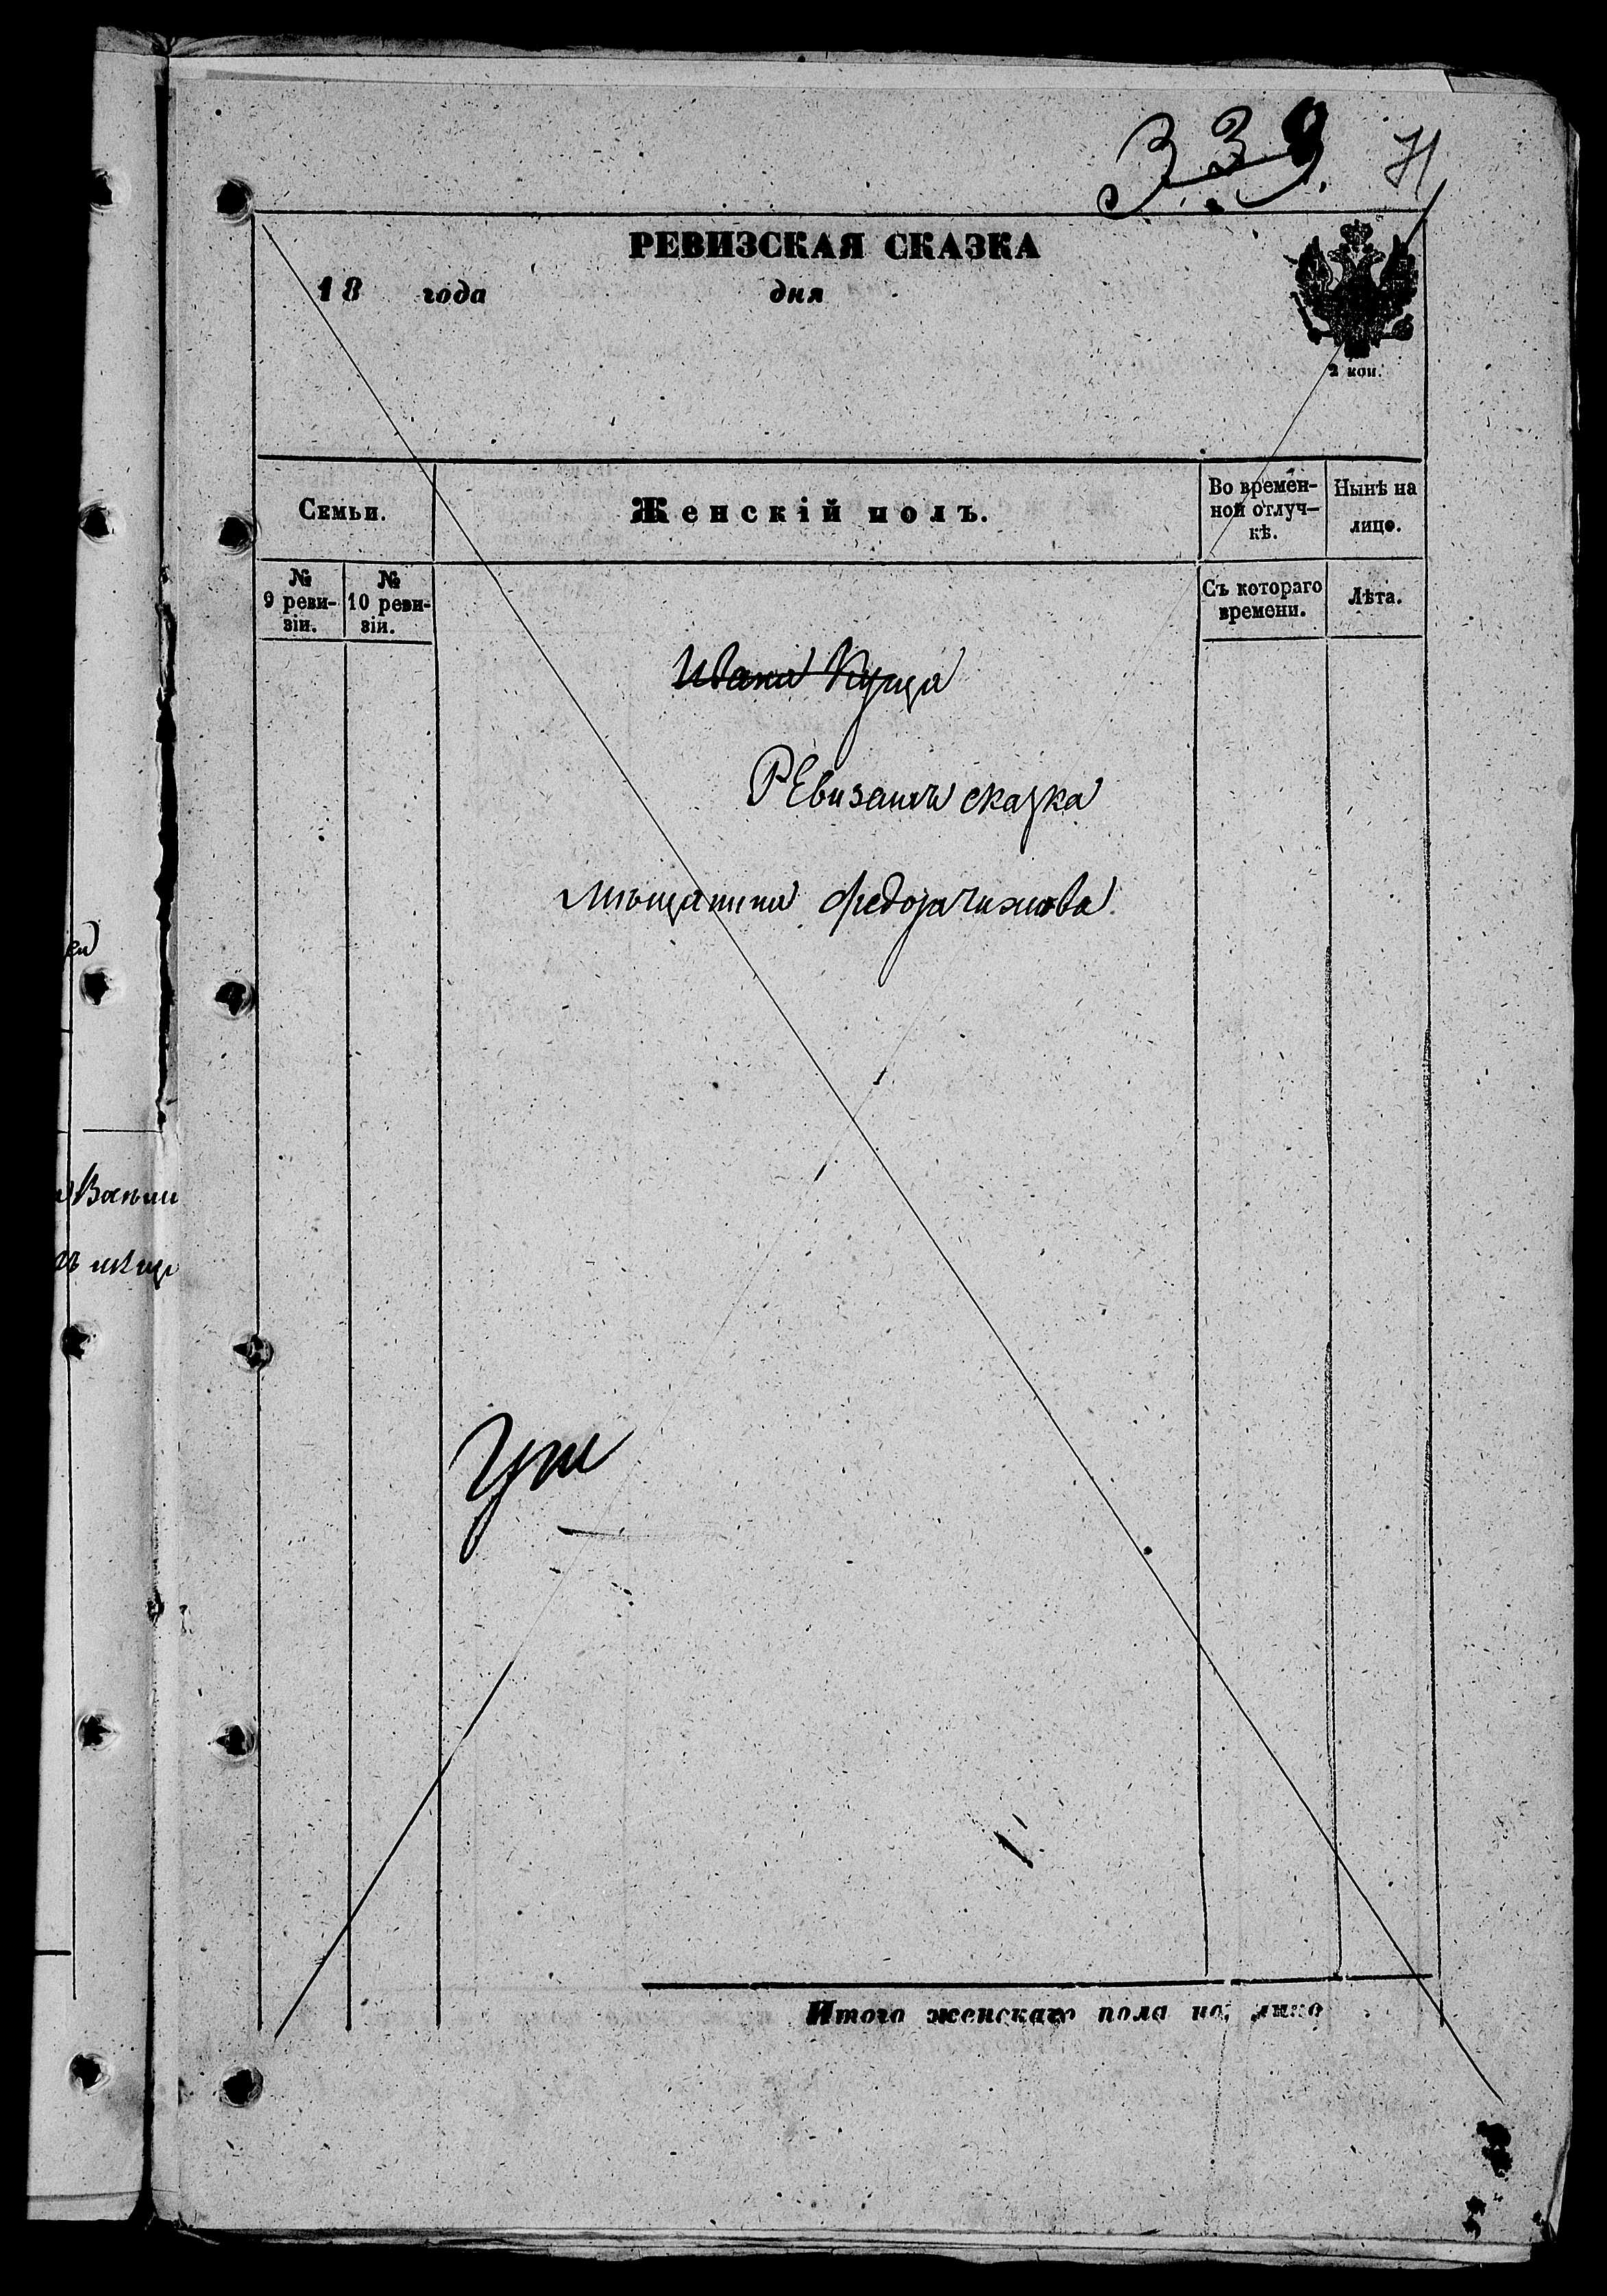 339. 71
РЕВИЗСКАЯ СКАЗКА
18 года дня
2 коп.
Семьи. Женскій полъ. Во времен-
ной отлуч-
кѣ. Нынѣ на
лицо.
№
9 реви-
зіи. №
10 реви-
зіи. Съ котораго
времени. Лѣта.
Ивана Куща
РЕвизскаъ сказка
мѣщанина Федора Чижова
Итого женскаго пола на лицо